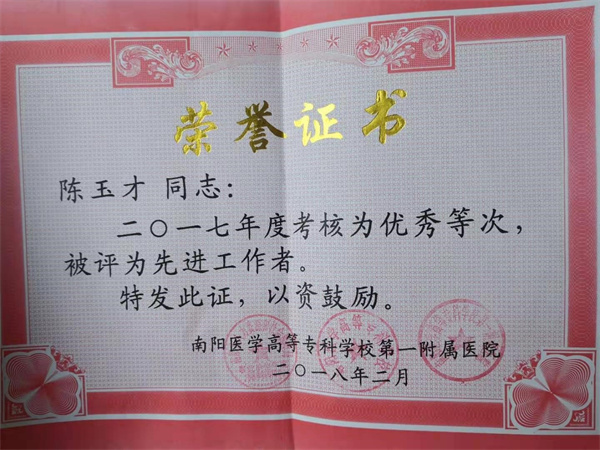 荣誉证书
陈玉才 同志：
二〇一七年度考核为优秀等次，
被评为先进工作者。
特发此证，以资鼓励。
南阳医学高等专科学校第一附属医院
二〇一八年二月